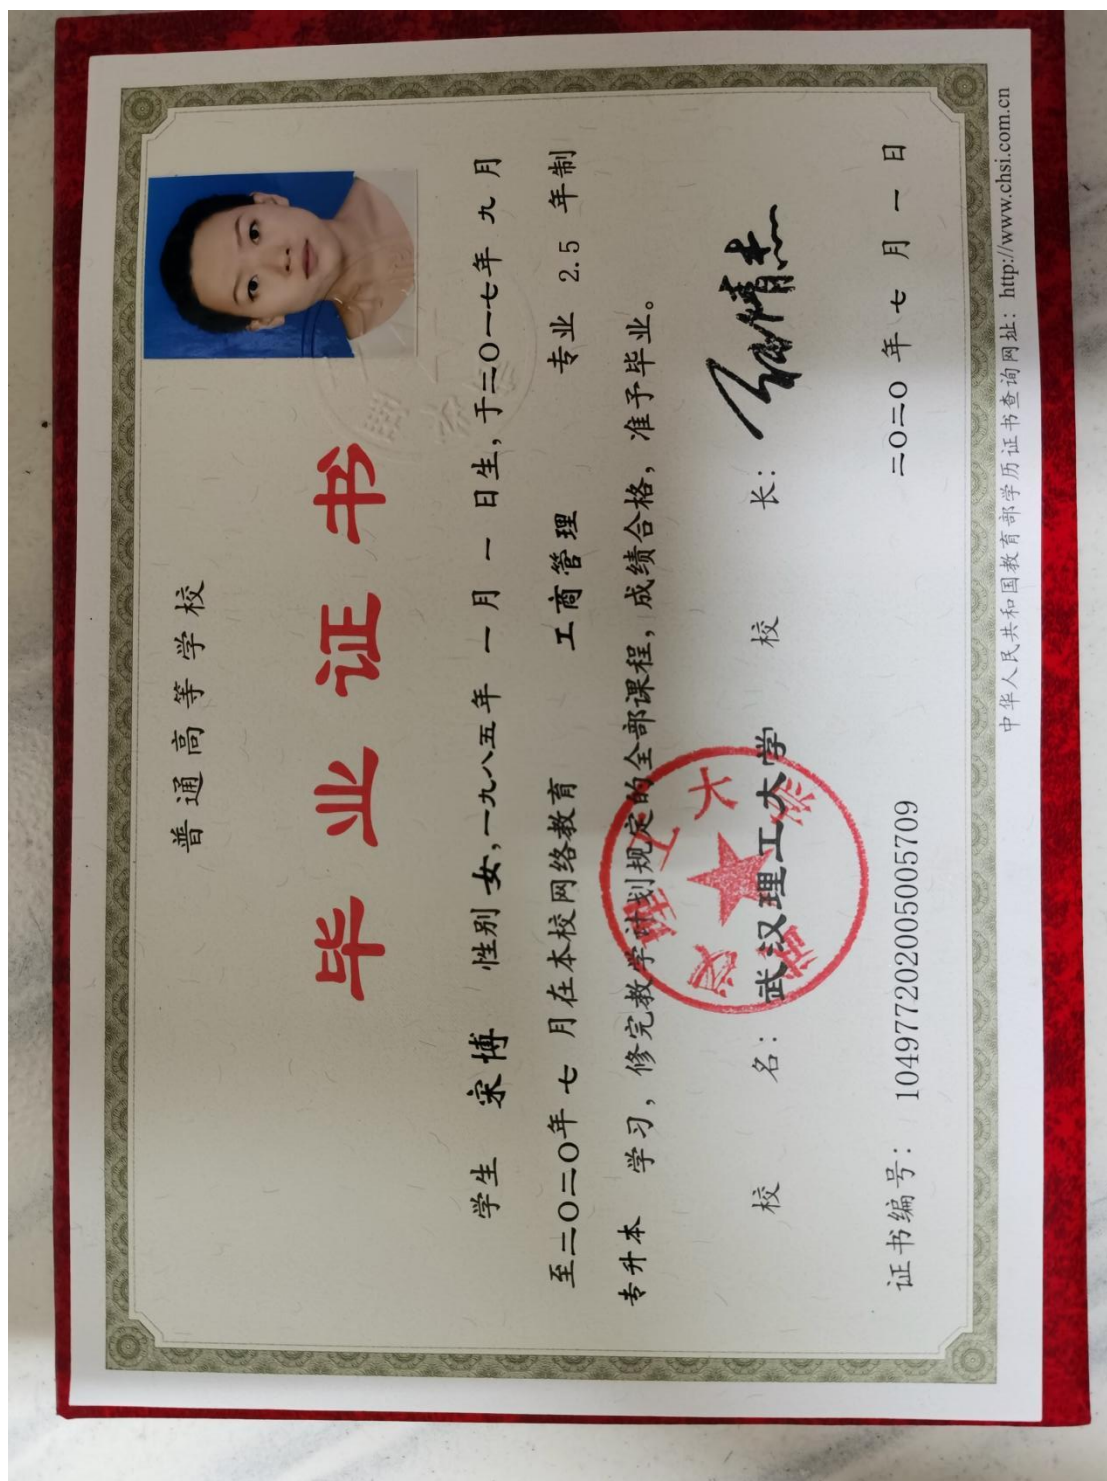 普通高等学校
毕业证书
学生 宋博 性别 女，一九八五年 一 月 一 日生，于二〇一七年 九 月
至二〇二〇年 七 月在本校网络教育 工商管理 专业 2.5 年制
专升本 学习，修完教学计划规定的全部课程，成绩合格，准予毕业。
校 名：武汉理工大学 校 长：
武汉理工大学
证书编号：104977202005005709 二〇二〇 年 七 月 一 日
中华人民共和国教育部学历证书查询网址：http://www.chsi.com.cn